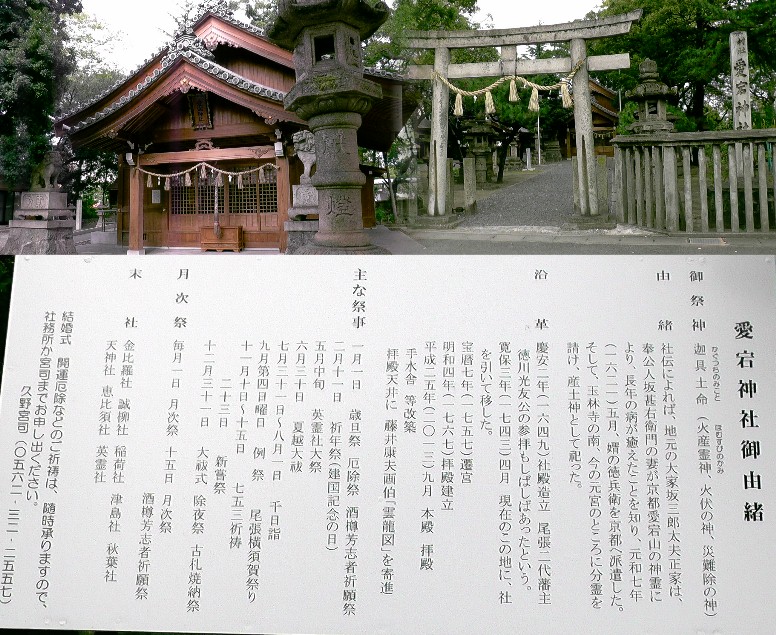 村社 愛宕神社
献燈
愛宕神社御由緒
御祭神 迦具土命（火産霊神、火伏の神、災難除の神）
かぐつちのみこと ほむすびのかみ
由緒 社伝によれば、地元の大家坂三郎太夫正家は、
奉公人坂甚右衛門の妻が京都愛宕山の神霊に
より、長年の病が癒えたことを知り、元和七年
（一六二一）五月 婿の徳兵衛を京都へ派遣した。
そして、玉林寺の南、今の元宮のところに分霊を
請け、産土神として祀った。
沿革 慶安二年（一六四九）社殿造立 尾張二代藩主
徳川光友公の参拝もしばしばあったという。
寛保三年（一七四三）四月 現在のこの地に、社
を引いて移した。
宝暦七年（一七五七）遷宮
明和四年（一七六七）拝殿建立
平成二五年（二〇一三）九月 本殿 拝殿
手水舎 等改築
拝殿天井に 藤井康夫画伯「雲龍図」を寄進
主な祭事 一月一日 歳旦祭 厄除祭 酒樽芳志者祈願祭
二月十一日 祈年祭（建国記念の日）
五月中旬 英霊社大祭
六月三十日 夏越大祓
七月三十一日〜八月一日 千日詣
九月第四日曜日 例祭 尾張横須賀祭り
十一月十日〜十五日 七五三祈祷
二十三日 新嘗祭
十二月三十一日 大祓式 除夜祭 古札焼納祭
月次祭 毎月一日 月次祭 十五日 月次祭
酒樽芳志者祈願祭
末社 金比羅社 誠柳社 稲荷社 津島社 秋葉社
天神社 恵比須社 英霊社
結婚式 開運厄除などのご祈祷は、随時承りますので、
社務所か宮司までお申し出ください。
久野宮司（〇五六二-三二-二五五七）